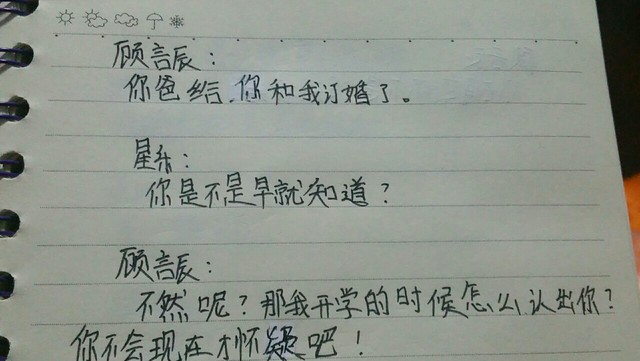 顾言辰：
你爸给你和我订婚了。
星乐：
你是不是早就知道？
顾言辰：
不然呢？那我开学的时候怎么认出你？
你不会现在才怀疑吧！